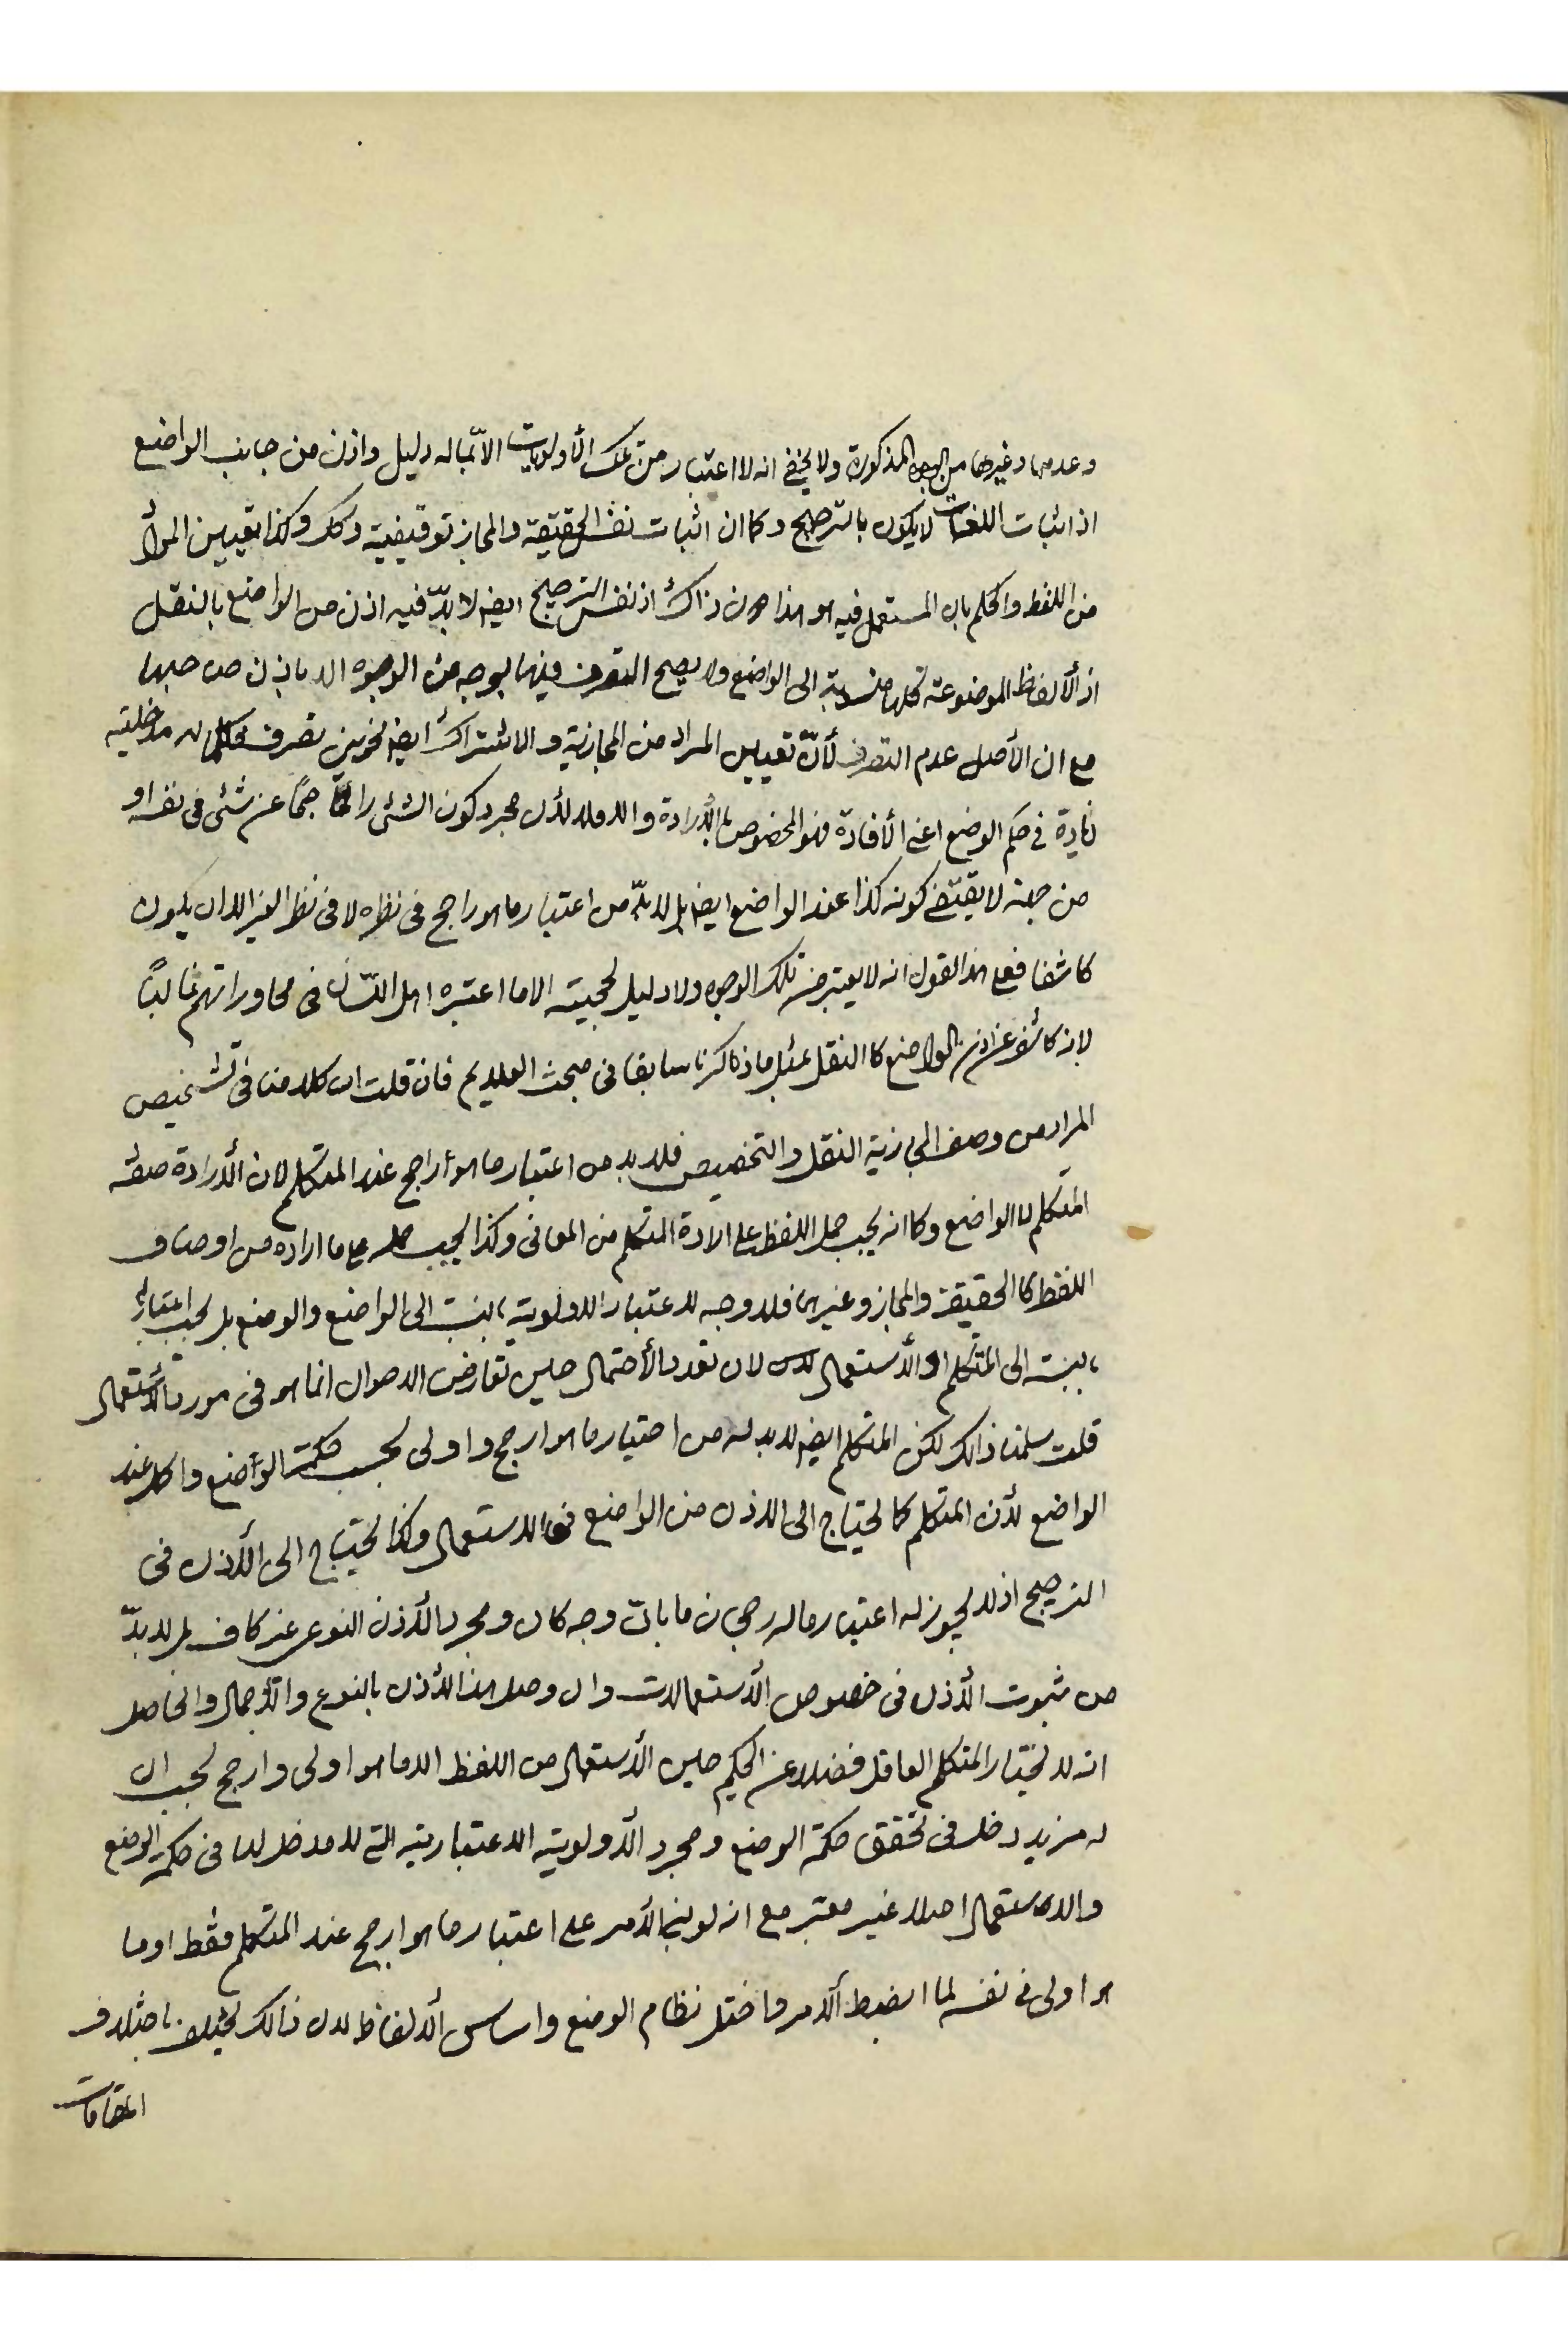 وعدمها وغيرها من الوجوه المذكورة ولا يخفى انه لا اعتبار من تلك الأولويات الا بما له دليل واذن من جانب الواضع
اذ اثبات اللغات لا يكون بالترجيح وكما ان اثبات نفس الحقيقة والمجاز توقيفية وكك وكذا تعيين المراد
من اللفظ والحكم بان المستعمل فيه هو هذا دون ذاك اذ نفس الترجيح ايضا لا بدّ فيه اذن من الواضع بالنقل
اذ الألفاظ الموضوعة كلها منسوبة الى الواضع ولا يصح التصرف فيها بوجه من الوجوه الا باذن صاحبها
مع ان الأصل عدم التصرف لأنّ تعيين المراد من المجازية والاشتراك ايضا نحو من تصرف فكلما له مدخلية
زيادة في حكم الوضع اعني الأفادة فهو المخصوص بالأرادة والا فلا لأن مجرد كون الشئ راجحًا عن شئ في نفسه او
من جهة لا يقتضي كونه كذا عند الواضع ايضا بل لا بدّ من اعتبار ما هو راجح في نظره لا في نظر الغير الا ان يكون
كاشفا فعلى هذا القول انه لا يعتبر من تلك الوجوه ولا دليل لحجيته الا ما اعتبره اهل اللّسان في محاوراتهم غالبًا
لانه كاشف عن اذن الواضع كالنقل بمثل ما ذاكرنا سابقا في مبحث العلايم فان قلت ان كلامنا في تشخيص
المراد من وصف المجازية النقل والتخصيص فلا بد من اعتبار ما هو أراجح عند المتكلم لان الأرادة صفة
المتكلم لا الواضع وكما انه يجب حمل اللفظ على ارادة المتكلم من المعانى وكذا يجب حمله على ما اراده من اوصاف
اللفظ كالحقيقة والمجاز وغيرها فلا وجه لاعتبار الاولوية بالنسبة الى الواضع والوضع بل يجب اعتباره
بالنسبة الى المتكلم والأستعمال لان تعدد الأحتمال حين تعارض الاحوال انما هو في مورد الأستعمال
قلت سلمنا ذالك لكن المتكلم ايضا لا بد له من اختيار ما هو ارجح واولى بحسب حكمة الواضع واكمل عند
الواضع لأن المتكلم كما يحتاج الى الاذن من الواضع في الاستعمال وكذا يحتاج الى الأذن في
الترجيح اذ لا يجوز له اعتبار ما له رجحان ما بأىّ وجه كان ومجرد الأذن النوعى غير كاف بل لا بدّ
من ثبوت الأذن في خصوص الأستعمالات وان وصل هذا الأذن بالنوع والأجمال والحاصل
انه لا يختار المتكلم العاقل فضلا عن الحكيم حين الأستعمال من اللفظ الا ما هو اولى وارجح بحسب ان
له مزيد دخل في تحقق حكمة الوضع ومجرد الأولوية الاعتبارية التي لا مدخل لها في حكمة الوضع
والاستعمال اصلا غير معتبر مع انه لو بنى الأمر على اعتبار ما هو ارجح عند المتكلم فقط او ما
هو اولى في نفسه لما انضبط الأمر واختل نظام الوضع واساس الألفاظ لان ذالك يختلف باختلاف
المقامات